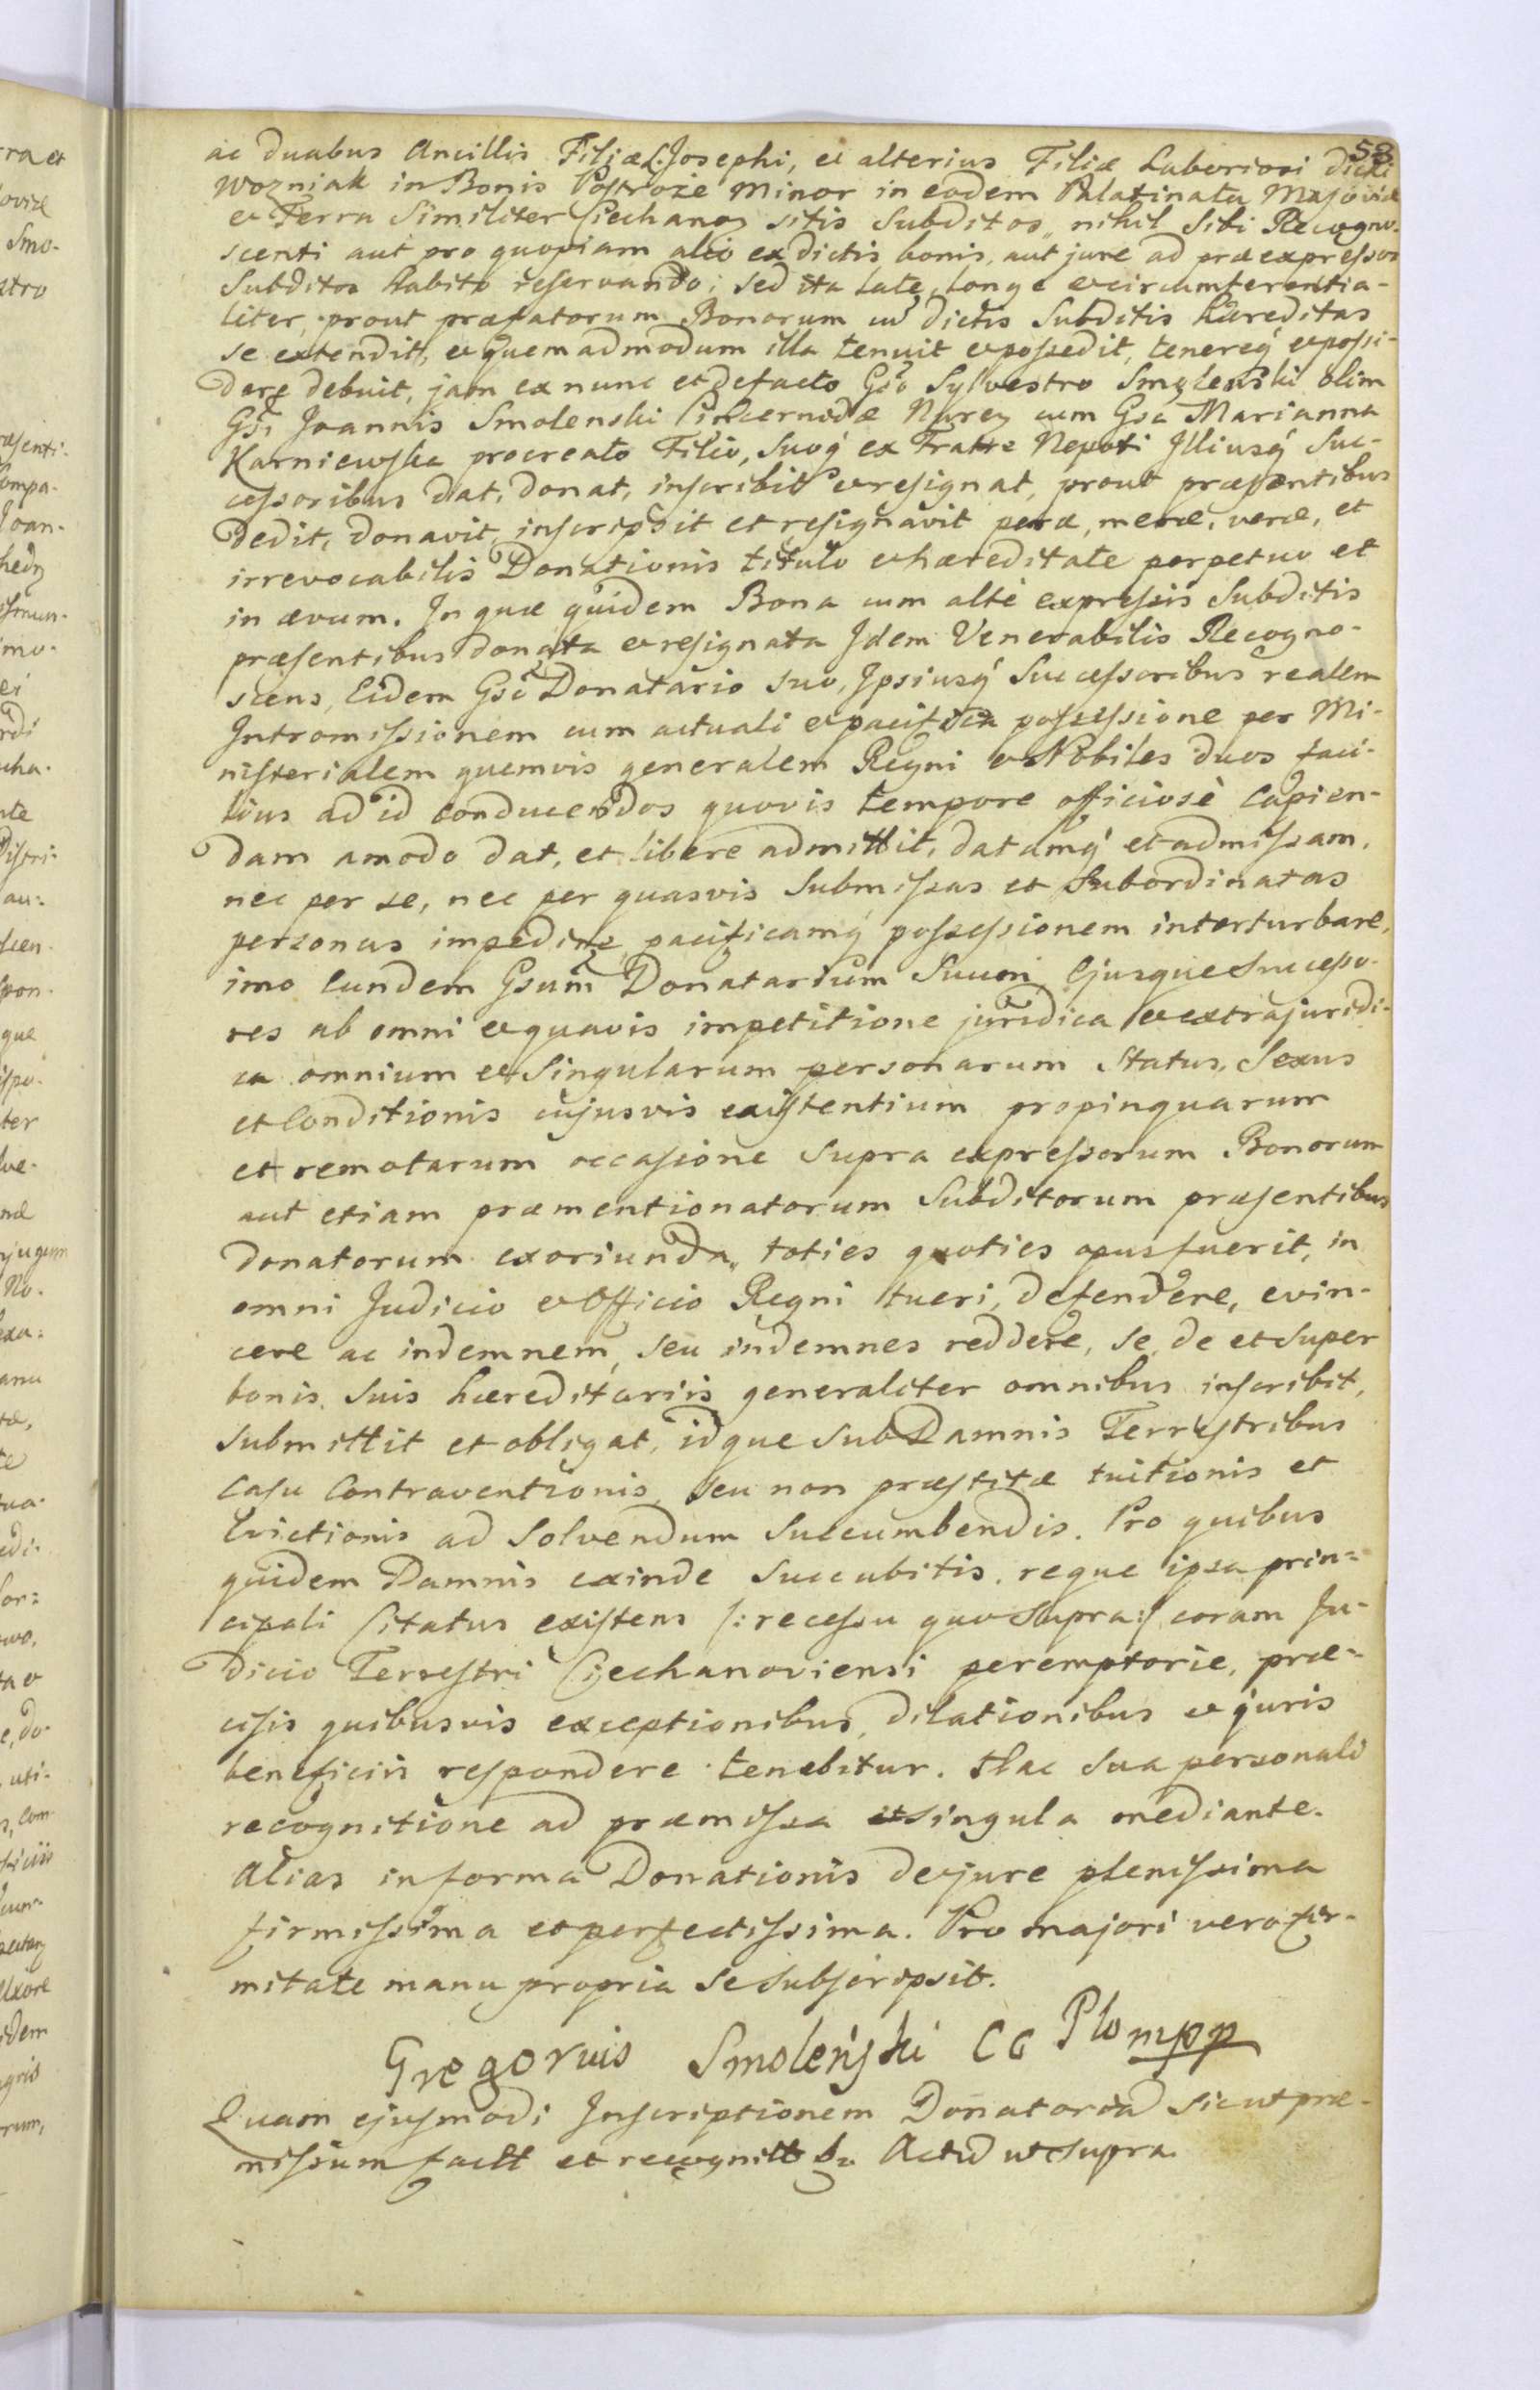 58
ac duabus Ancillis Filiæ L. Josephi, et alterius Filiæ Laboriosi dicti
Wozniak in Bonis Postroże Minor in eodem Palatinatu Masoviæ
et Terra Similiter Ciechanoz sitis Subditos, nihil Sibi Recogno-
scenti aut pro quopiam alio ex dictis bonis, aut jure ad præexpressos
Subditos habito reservando; sed ita late, longe et circumferentia-
liter, prout præfatorum Bonorum cum dictis Subditis hæreditas
se extendit, et quemadmodum illa tenuit et possedit, tenereq́ et possi-
dere debuit, jam ex nunc et defacto Gso Sylvestro Smolenski olim
Gsi Joannis Smolenski Pincernidæ Nurez cum Gsa Marianna
Karniewska procreato Filio, Suoq́ ex Fratre Nepoti Illiusq́ Suc-
cessoribus dat, donat, inscribit et resignat, prout præsentibus
dedit, donavit, inscripsit et resignavit puræ, meræ, veræ, et
irrevocabilis Donationis titulo et hæreditate perpetuo et
in ævum. In quæ quidem Bona cum altè expressis Subditis
præsentibus donata et resignata Idem Venerabilis Recogno-
scens, Eidem Gso Donatario suo, Ipsiusq́ Successoribus realem
Intromissionem cum actuali et pacifica possessione per Mi-
nisterialem quemvis generalem Regni et Nobiles duos faci-
lius ad id conducendos quovis tempore officiosè capien-
dam amodo dat, et libere admittit, datamq́ et admissam,
nec per se, nec per quasvis Submissas et Subordinatas
personas impedire, pacificamq́ possessionem interturbare,
imo Eundem Gsum Donatarium Suum, Ejusque Successo-
res ab omni et quavis impetitione juridica et extrajuridi-
ca omnium et Singularum personarum Status, Sexus
et Conditionis cujusvis existentium propinquarum
et remotarum occasione Supra expressorum Bonorum
aut etiam præmentionatorum Subditorum præsentibus
donatorum exoriunda, toties quoties opus fuerit, in
omni Judicio et Officio Regni tueri, defendere, evin-
cere ac indemnem, seu indemnes reddere, se, de et super
bonis suis hæreditariis generaliter omnibus inscribit,
submittit et obligat, idque sub Damnis Terrestribus
Casu Contraventionis, seu non præstitæ tuitionis et
Evictionis ad Solvendum Succumbendis. Pro quibus
quidem Damnis exinde Succubitis, reque ipsa prin-
cipali Citatus existens /: recessu quo supra :/ coram Ju-
dicio Terrestri Ciechanoviensi peremptorie, præ-
cisis quibusvis exceptionibus, dilationibus et juris
beneficiis respondere tenebitur. Hac sua personali
recognitione ad præmissa et singula mediante.
Alias in forma Donationis de jure plenissima
firmissima et perfectissima. Pro majori vero fir-
mitate manu propria se subscripsit.
Gregorius Smoleński CC Plo mpp
Quam ejusmodi Inscriptionem Donatoria sicut præ-
missum facit et recognitt Actu ut supra.